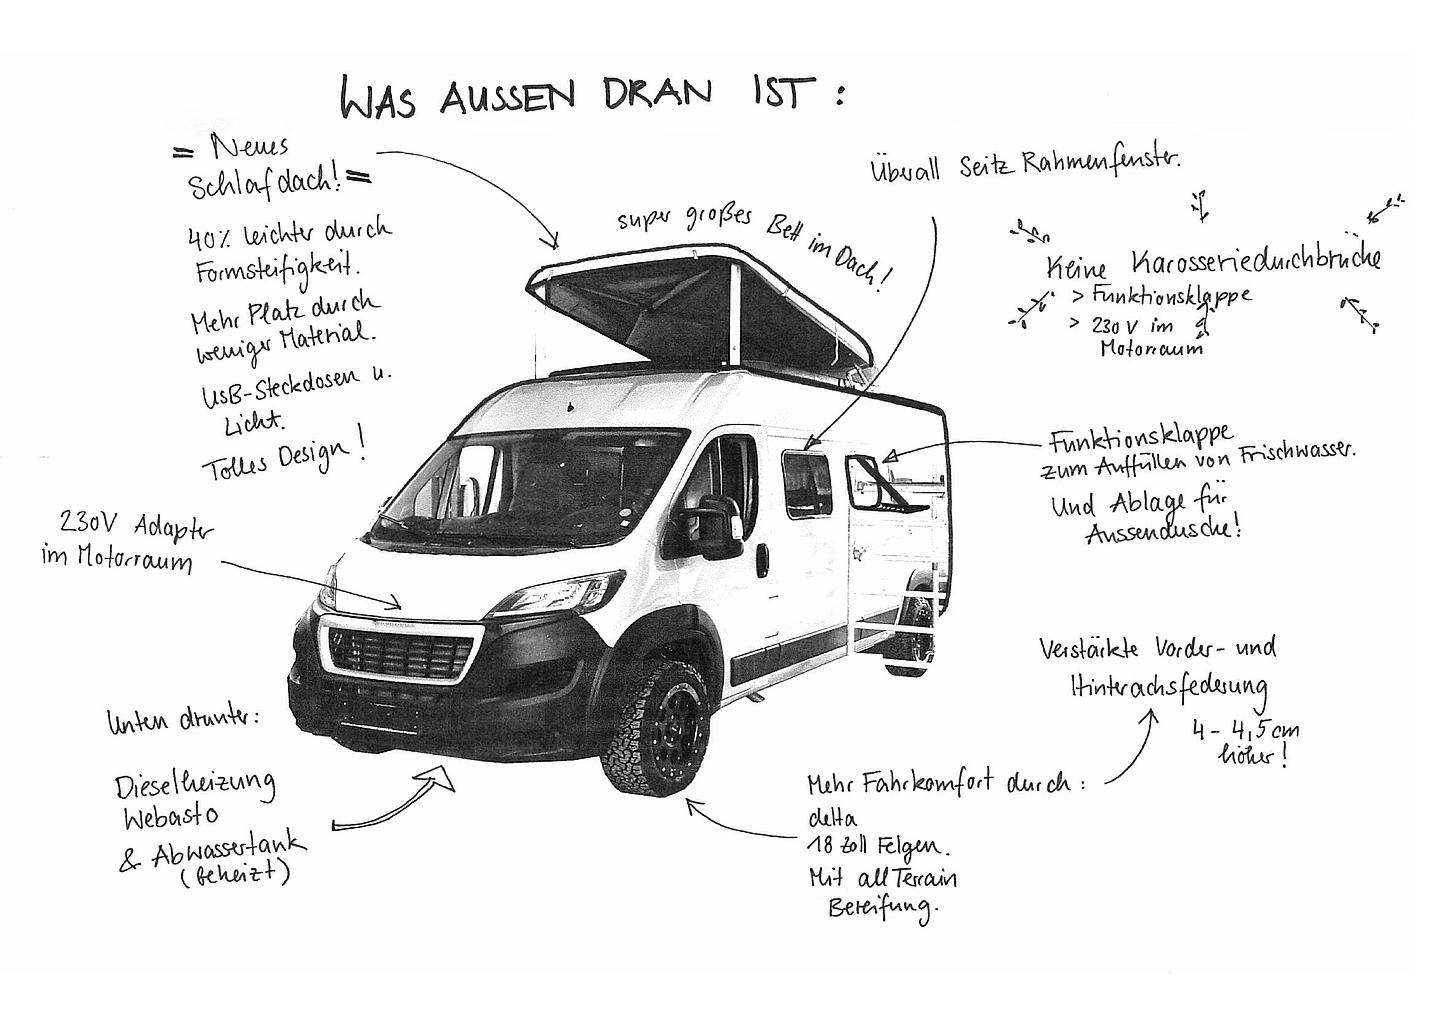 WAS AUSSEN DRAN IST:
= Neues
Schlafdach! =
40% leichter durch
Formsteifigkeit.
Mehr Platz durch
weniger Material.
USB-Steckdosen u.
Licht.
Tolles Design!
super großes Bett im Dach!
Überall Seitz Rahmenfenster.
Keine Karosseriedurchbrüche
> Funktionsklappe
> 230 V im
Motorraum
Funktionsklappe
zum Auffüllen von Frischwasser.
Und Ablage für
Aussendusche!
230V Adapter
im Motorraum
Verstärkte Vorder- und
Hinterachsfederung
4 - 4,5 cm
höher!
Unten drunter:
Dieselheizung
Webasto
& Abwassertank
(beheizt)
Mehr Fahrkomfort durch:
delta
18 Zoll Felgen.
Mit all Terrain
Bereifung.